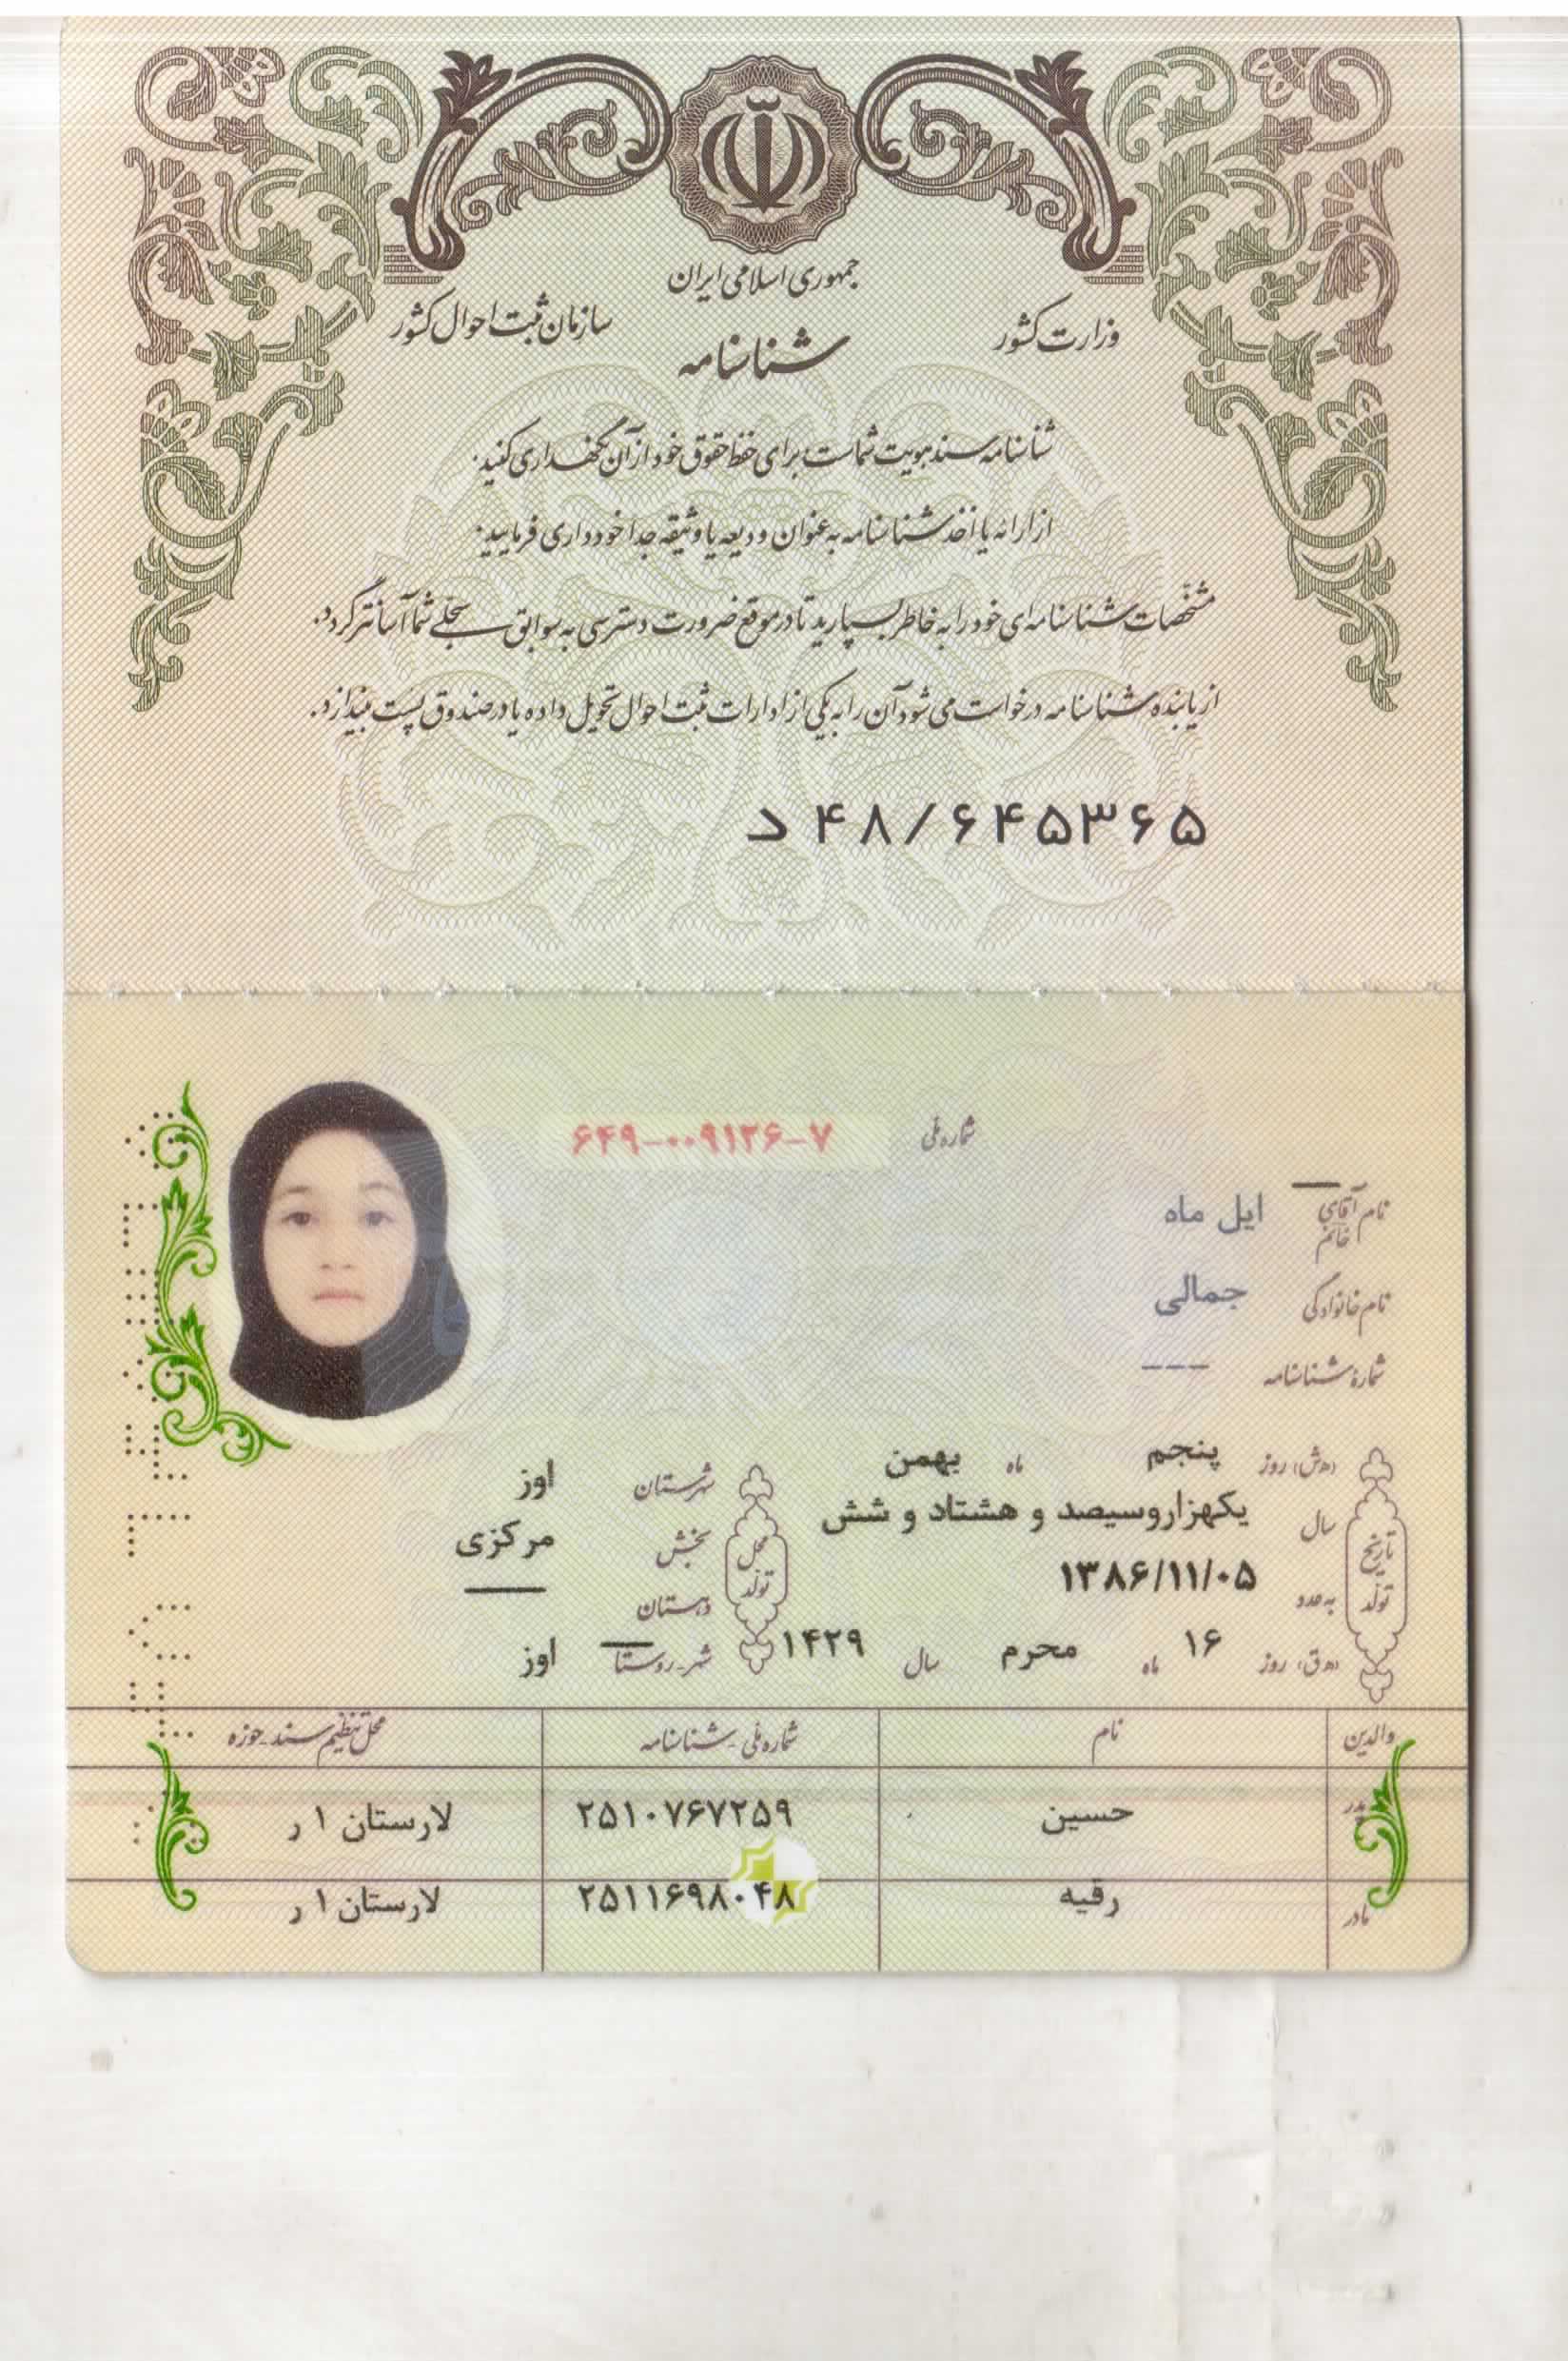 جمهوری اسلامی ایران
وزارت کشور
سازمان ثبت احوال کشور
شناسنامه
شناسنامه سند هویت شماست برای حفظ حقوق خود از آن نگهداری کنید.
از ارائه یا اخذ شناسنامه به عنوان ودیعه یا وثیقه جدا خودداری فرمایید.
مشخصات شناسنامه‌ای خود را به خاطر بسپارید تا در موقع ضرورت دسترسی به سوابق سجلی شما آسانتر گردد.
از یابنده شناسنامه درخواست می شود آن را به یکی از ادارات ثبت احوال تحویل داده یا در صندوق پست بیندازد.
د ۴۸/۶۴۵۳۶۵
شماره ملی ۶۴۹-۰۰۹۱۲۶-۷
نام آقای خانم ایل ماه
نام خانوادگی جمالی
شمارهٔ شناسنامه ---
تاریخ تولد
(ه‍.ش) روز پنجم ماه بهمن
سال یکهزاروسیصد و هشتاد و شش
به عدد ۱۳۸۶/۱۱/۰۵
(ه‍.ق) روز ۱۶ ماه محرم سال ۱۴۲۹
محل تولد
شهرستان اوز
بخش مرکزی
دهستان ——
شهر-روستا اوز
والدین نام شماره ملی-شناسنامه محل تنظیم سند-حوزه
پدر حسین ۲۵۱۰۷۶۷۲۵۹ لارستان ۱ ر
مادر رقیه ۲۵۱۱۶۹۸۰۴۸ لارستان ۱ ر